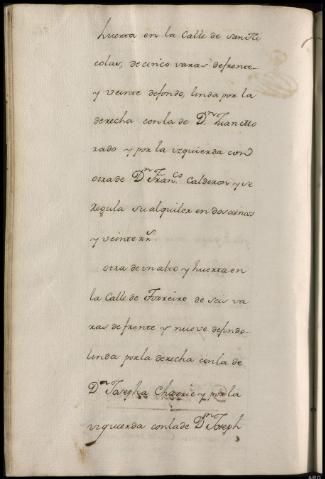 huerta en la Calle de San Ni
colas, de cinco varas defrente
y veinte defondo, linda por la
derecha con la de Dn. Juan Mo
rado y por la yzquierda con
otra de Dn. Franco. Calderon y se
regula su alquiler en doscienos
y veinte rrs.
otra de un alto y huerta en
la Calle de Torreiro de seis va
ras de frente y nueve defondo
linda por la derecha con la de
Dn. Josepha y por la
yzquierda con la de Dn. Joseph